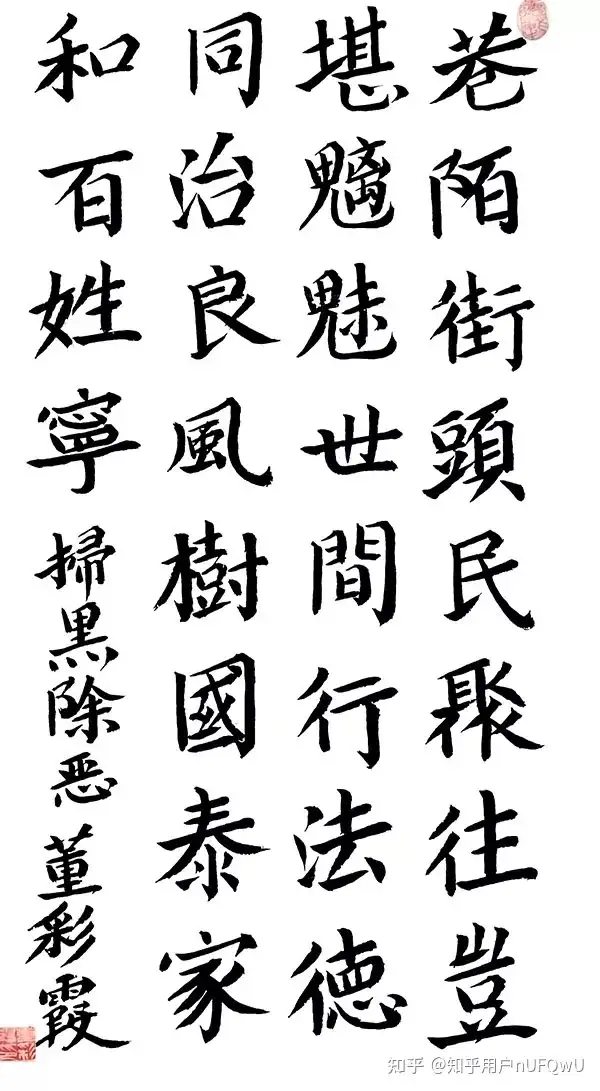 巷陌街頭民聚往豈
堪魑魅世間行法德
同治良風樹國泰家
和百姓寧
掃黑除恶 董彩霞
知乎 @知乎用户nUFQwU